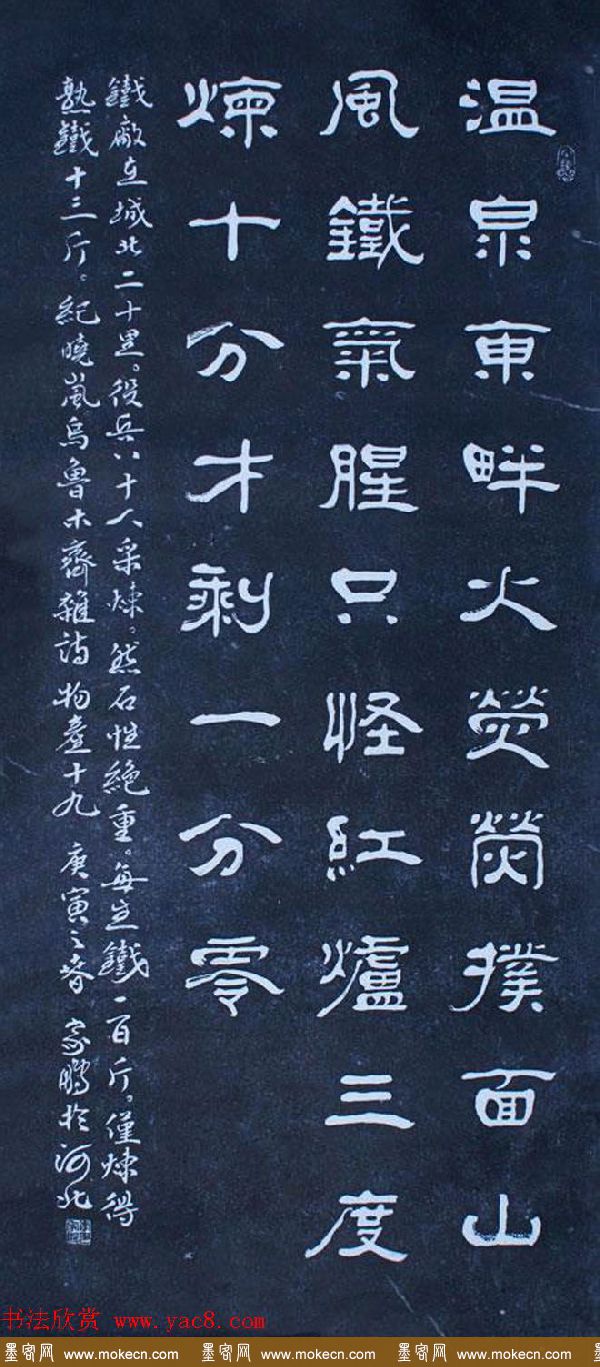 温泉東畔火熒熒撲面山
風鐵氣腥只怪紅爐三度
煉十分才剩一分零
鐵廠在城北二十里。役兵八十人采煉。然石性絕重。每生鐵一百斤。僅煉得
熟鐵十三斤。紀曉嵐烏魯木齊雜詩物產十九 庚寅之春 家鵬於河北
书法欣赏 www.yac8.com
墨客网 www.mokecn.com 墨客网 www.mokecn.com 墨客网 www.mokecn.com